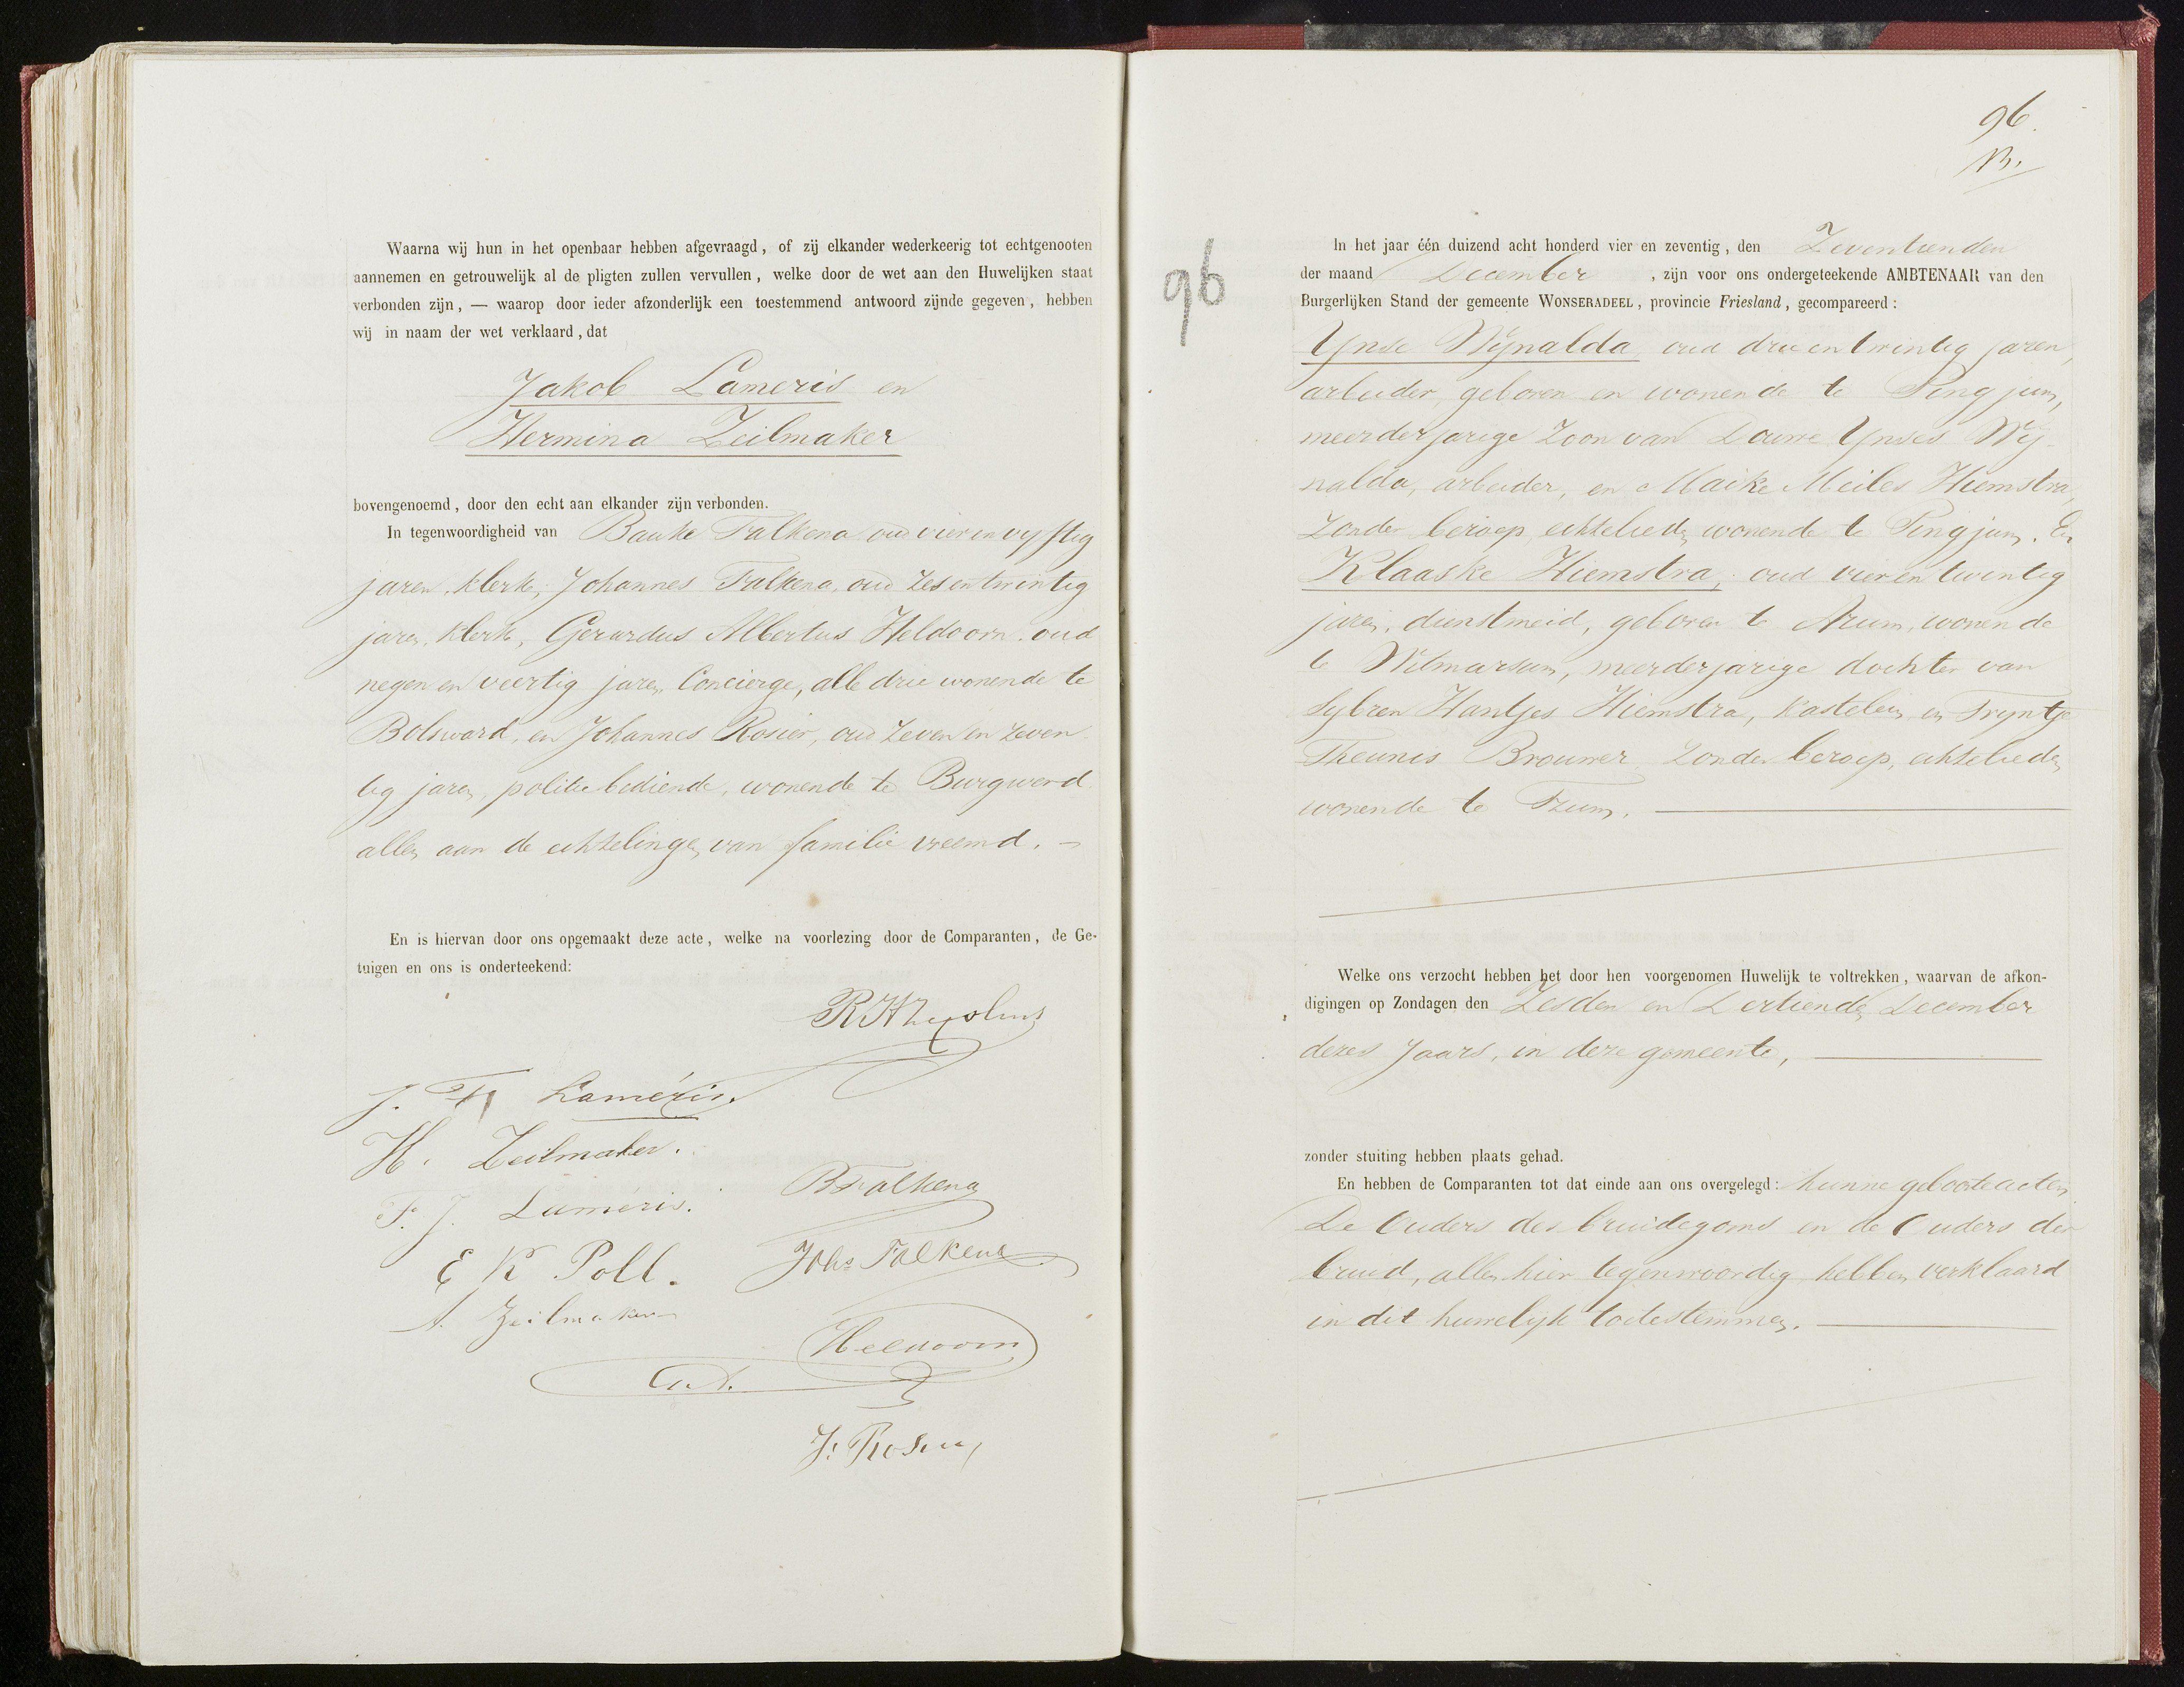 Waarna wij hun in het openbaar hebben afgevraagd, of zij elkander wederkeerig tot echtgenooten
aannemen en getrouwelijk al de pligten zullen vervullen, welke door de wet aan den Huwelijken staat
verbonden zijn, — waarop door ieder afzonderlijk een toestemmend antwoord zijnde gegeven, hebben
wij in naam der wet verklaard, dat
Jakob Lameris en
Hermina Zeilmaker
bovengenoemd, door den echt aan elkander zijn verbonden.
In tegenwoordigheid van Bauke Falkena oud vier en vyftig
jaren, klerk, Johannes Falkena, oud zes en twintig
jaren, klerk, Gerardus Albertus Heldoorn, oud
negen en veertig jaren, Concierge, alle drie wonende te
Bolsward, en Johannes Rosier, oud zeven en zeven
tig jaren, politie bediende, wonende te Burgwerd
allen aan de echtelingen van familie vreemd. –
En is hiervan door ons opgemaakt deze acte, welke na voorlezing door de Comparanten, de Ge-
tuigen en ons is onderteekend:
J. Laméris.
H. Zeilmaker.
B Falkena
F. J. Laméris.
Johs Falkena
E K Poll.
A. Zeilmaker
Heldoorn
J: Rosier
96.
B.
96
In het jaar één duizend acht honderd vier en zeventig, den Zeventienden
der maand December, zijn voor ons ondergeteekende AMBTENAAR van den
Burgerlijken Stand der gemeente WONSERADEEL, provincie Friesland, gecompareerd:
Ynse Wynalda oud drie en twintig jaren,
arbeider, geboren en wonende te Pingjum,
meerderjarige Zoon van Douwe Ynses Wy-
nalda, arbeider, en Maike Meiles Hiemstra,
Zonder beroep, echtelieden wonende te Pingjum. En
Klaaske Hiemstra, oud vier en twintig
jaren, dienstmeid, geboren te Arum, wonende
te Witmarsum, meerderjarige dochter van
Sybren Hantjes Hiemstra, Kastelein en Tryntje
Theunis Brouwer, Zonder beroep, echtelieden
wonende te Tzum.
Welke ons verzocht hebben het door hen voorgenomen Huwelijk te voltrekken, waarvan de afkon-
digingen op Zondagen den Zesden en Dertienden December
dezes Jaars, in deze gemeente,
zonder stuiting hebben plaats gehad.
En hebben de Comparanten tot dat einde aan ons overgelegd: hunne geboorteacten
De Ouders des bruidegoms en de Ouders der
bruid, allen hier tegenwoordig hebben verklaard
in dit huwelyk toetestemmen.